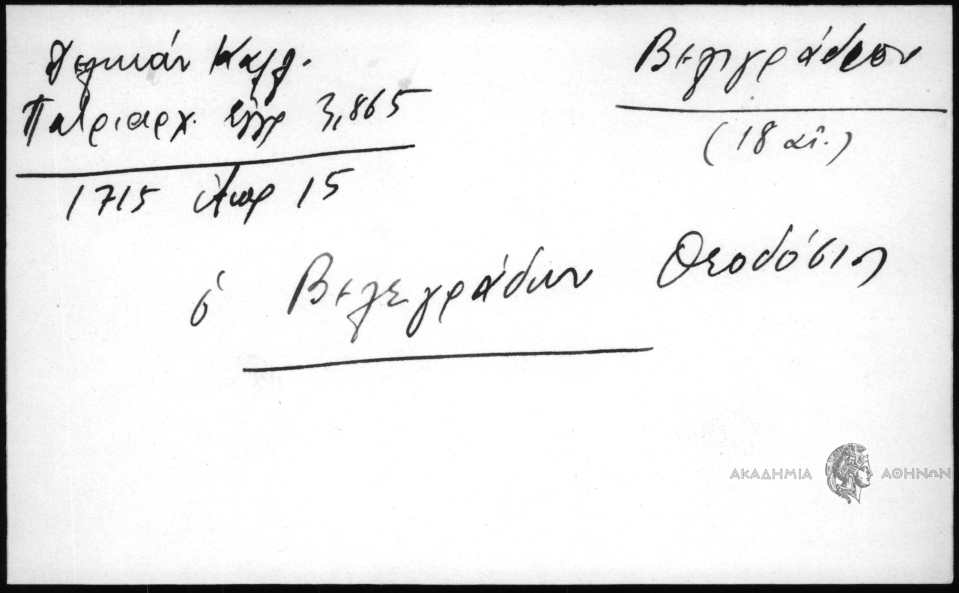 Δελικάν Καλλ.
Πατριαρχ. ἔγγρ 3,865
1715 Ἀπρ 15
Βελιγράδιον
(18 αἰ.)
ὁ Βελεγράδων Θεοδόσιος
ΑΚΑΔΗΜΙΑ ΑΘΗΝΩΝ